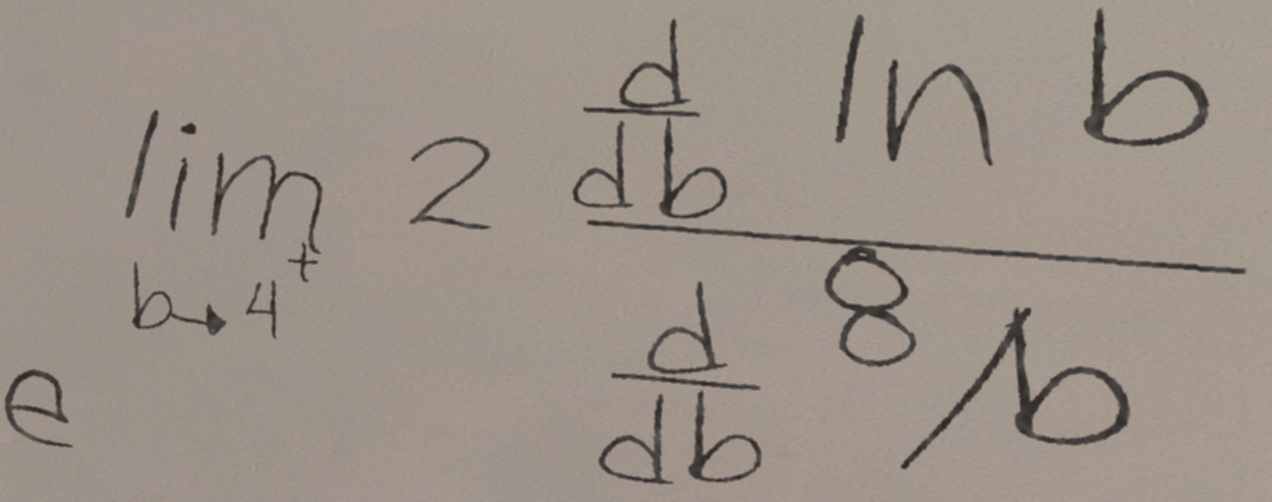 e^{\lim_{b \to 4^+} 2 \frac{\frac{d}{db} \ln b}{\frac{d}{db} 8/b}}